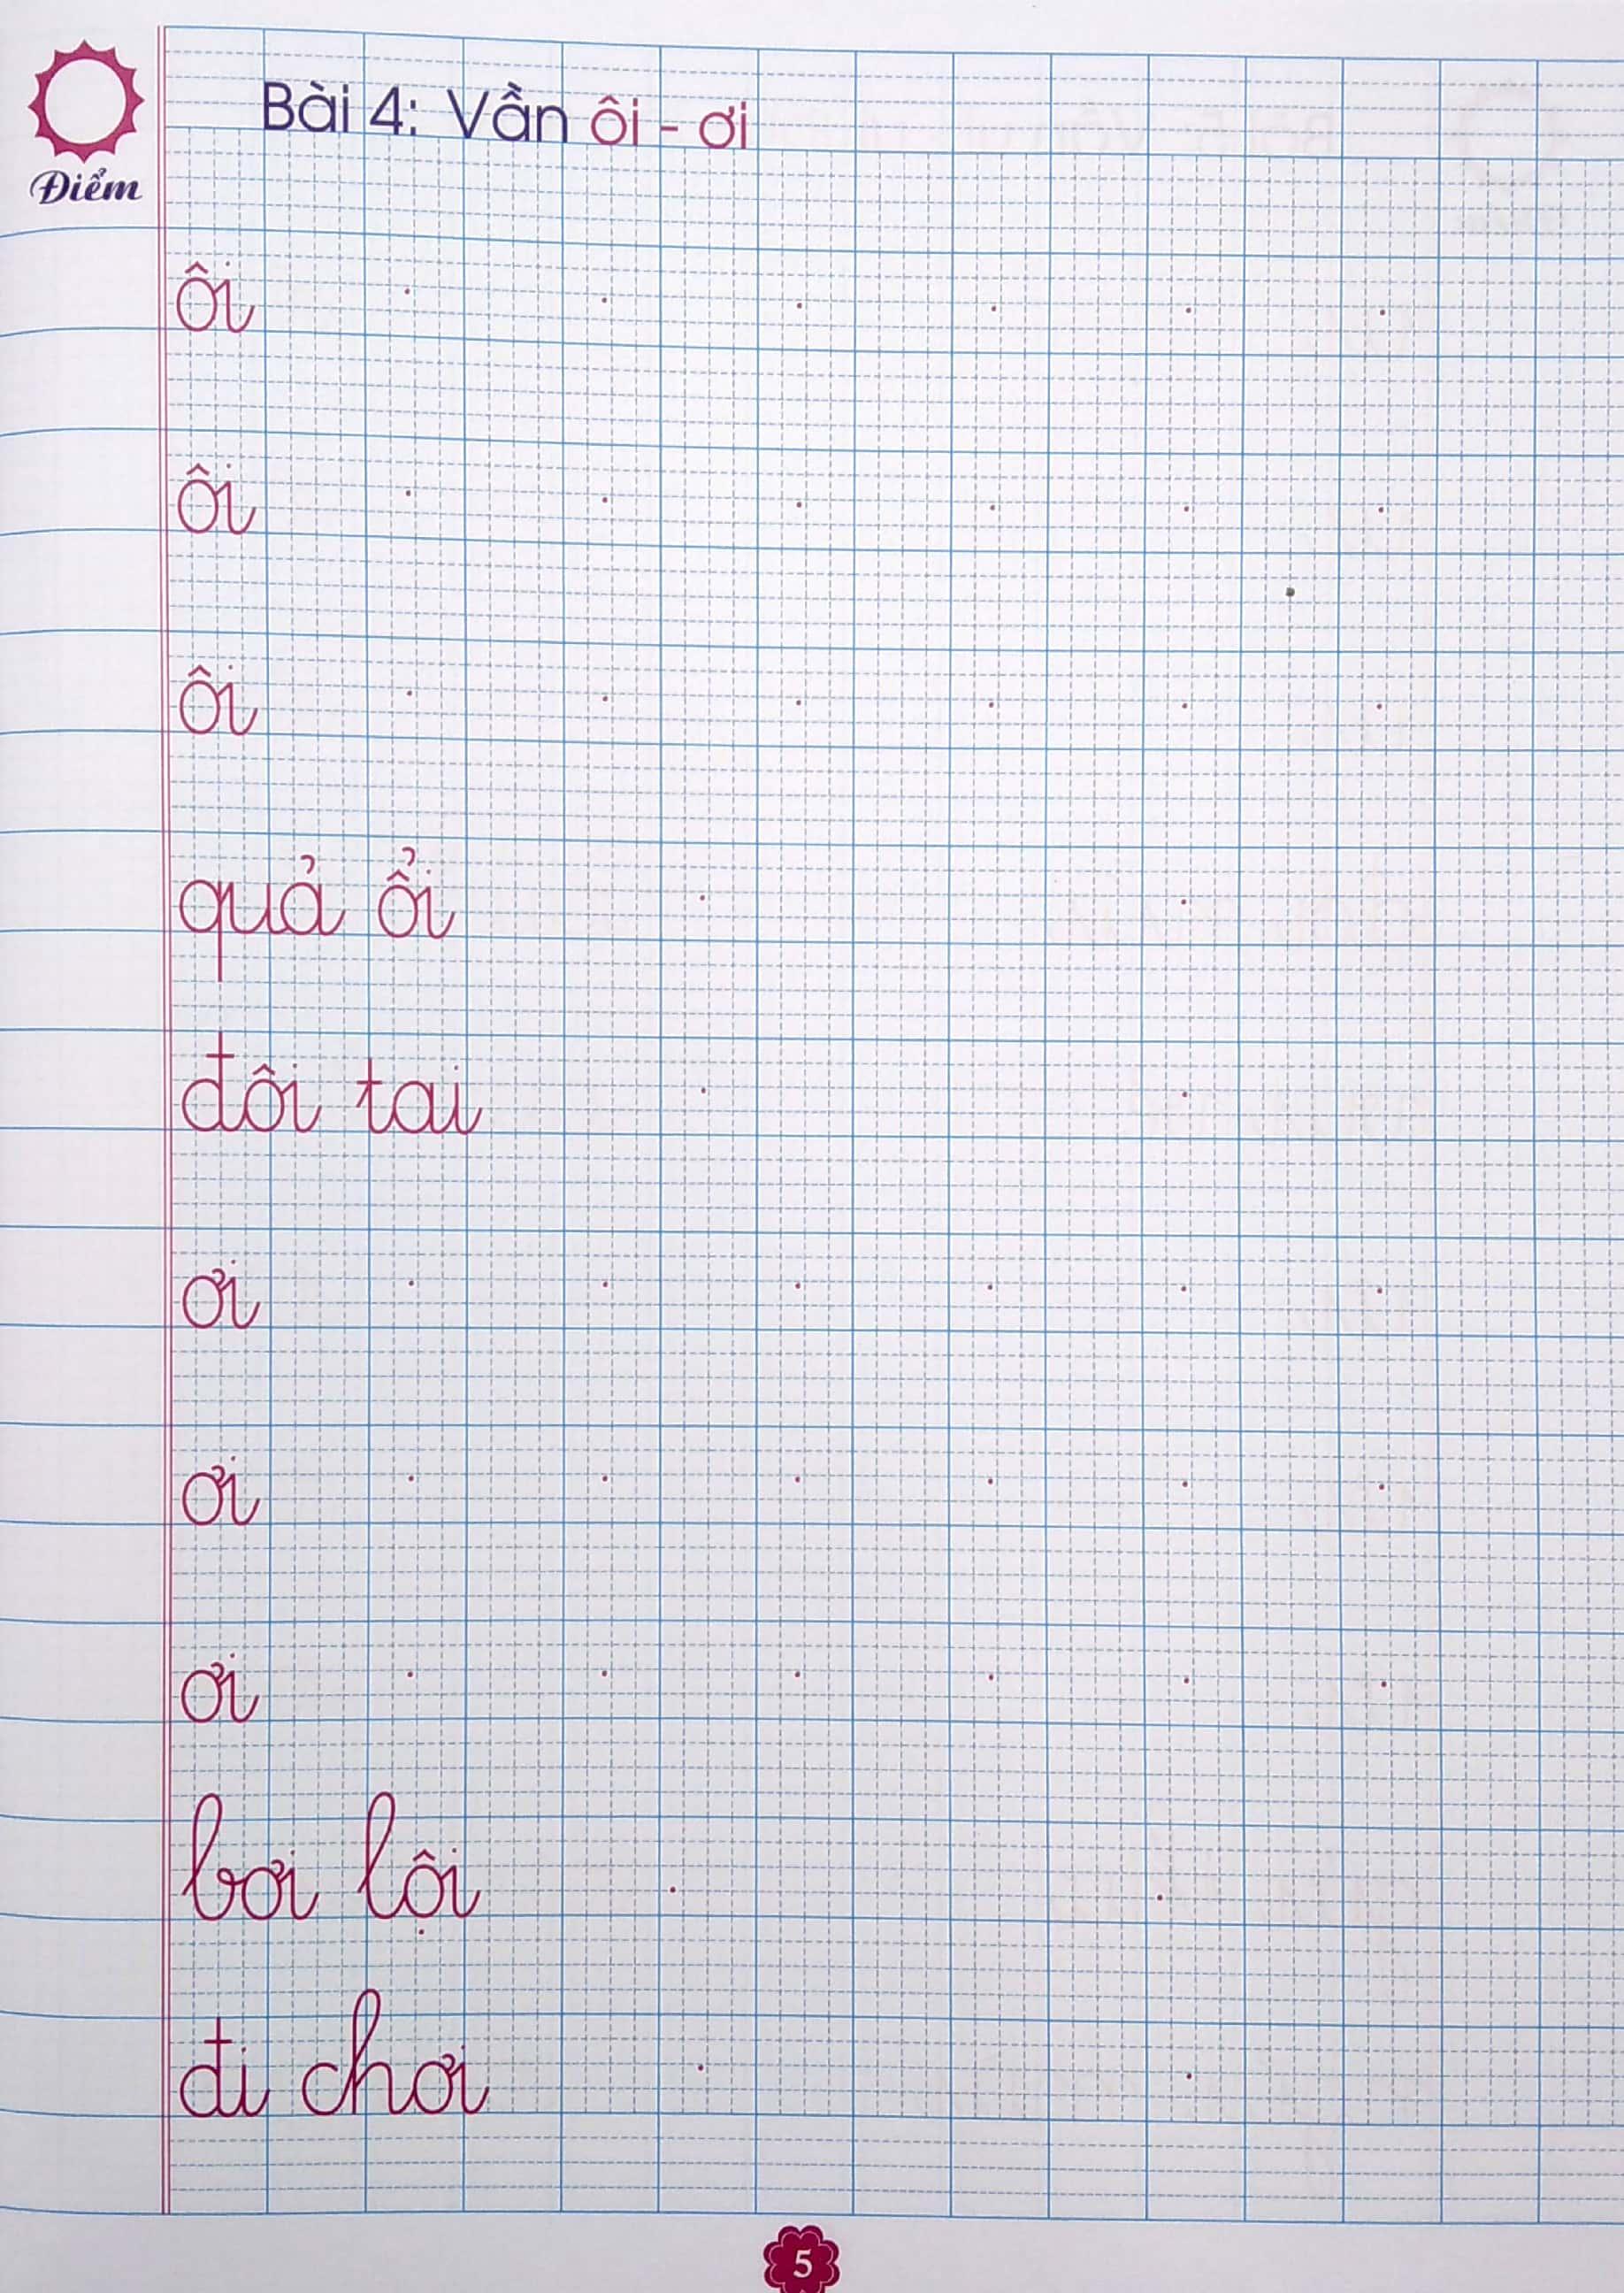 Bài 4: Vần ôi - ơi
Điểm
ôi
ôi
ôi
quả ổi
đôi tai
ơi
ơi
ơi
bơi lội
đi chơi
5